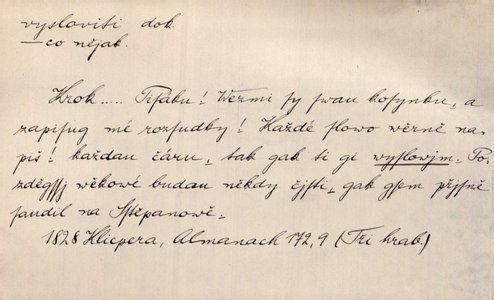 vysloviti dok.
—co nějak.
Krok..... Pisaku! Wezmi sy swau kosynku, a
zapisug mé rozsudky! Každé slowo wěrně na-
piš! každau čáru, tak gak ti gi wyslowjm. Po-
zděgssj wěkowé budau někdy čjsti, gak gsem přjsně
saudil na Sstěpanowě.
1828 Klicpera, Almanach 172,9 (Tři hrab.)